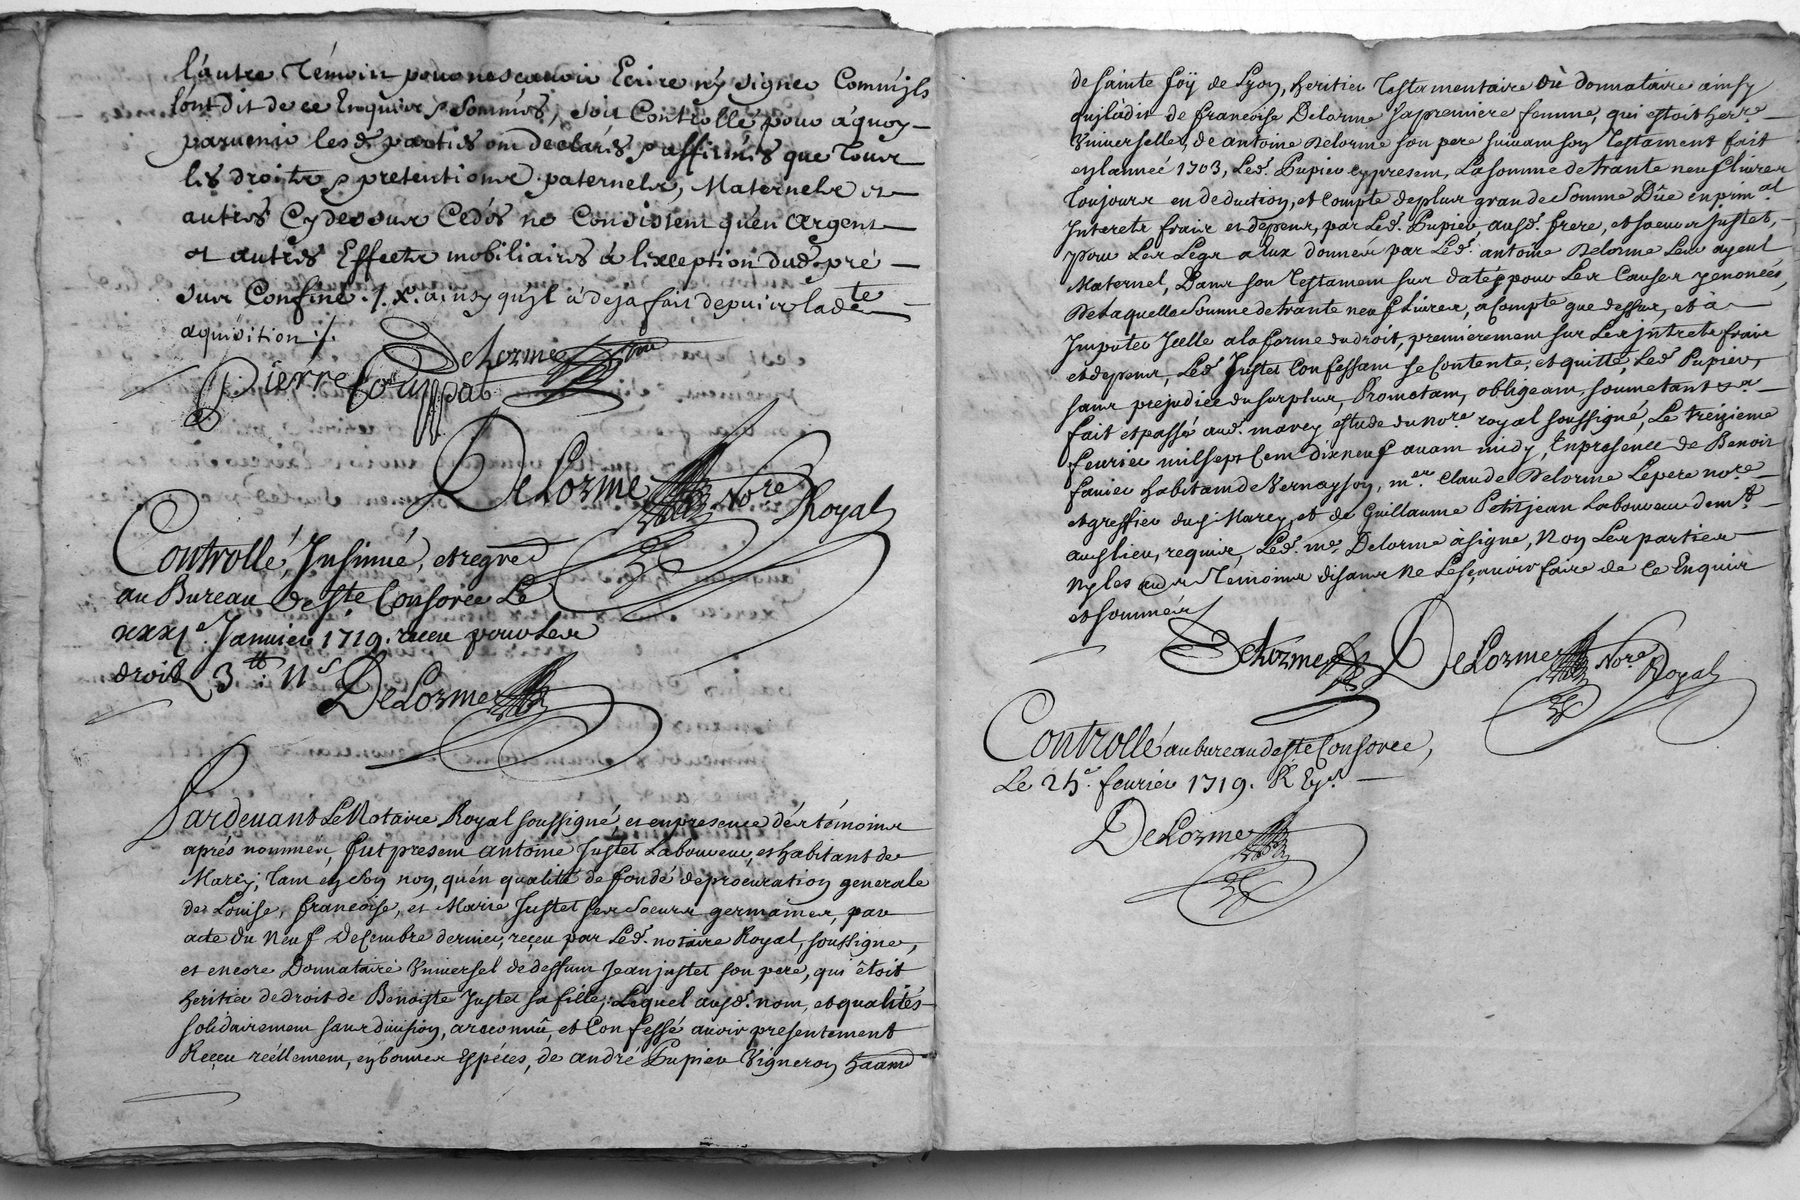 l'autre témoin pour ne scavoir Ecrire ny signer Comm'jls
l'ont dit de ce Enquis & sommés, soit Controllé pour à quoy
parvenir lesd. parties ont declarés & affirmés que tous
les droits & pretentions paternels, Maternels et
autres Cy dessus Cedés ne Consistent qu'en Argent
et autres Effects mobiliaires à l'exception dud. pré
sus Confiné ./. X. ainsy qu'jl à deja fait depuis lad.te
aquisition ./.
DeLorme
Pierre
DeLorme No.re Royal
Controllé, Insinué, et regré
au Bureau de S.te Consorce Le
xxxj.e Janvier 1719. receu pour les
droits 3.tt 11.s DeLorme
Pardevant Le Notaire Royal soussigné, et en presence dés témoins
aprés nommés, fut present antoine Justet Laboureur, et habitant de
Marcy, tant en son nom, qu'en qualité de fondé de procuration generale
de Louise, francoise, et Marie Justet ses soeurs germaines, par
acte du Neuf Decembre dernier, reçeu par Led. notaire Royal, soussigné,
et encore Donnataire Universel de deffunt Jean justet son pere, qui êtoit
heritier de droit de Benoiste Justet sa fille, Lequel ausd. nom, et qualités
solidairement sans division, a reconnû, et Confessé avoir presentement
Reçeu réellement, en bonnes Espéces, de andré Pupier Vigneron habitand
de Sainte foÿ de Lyon, heritier Testamentaire où donnataire ainsy
qu'jl a dit de francoise Delorme sa premiére femme, qui estoit her.re
Universelle, de antoine Delorme son pere suivant son Testament fait
en l'année 1703, Led. Pupier cy present, La somme de trante neuf livres
Toujours en deduction, et Compte de plus grande Somme Dûe en prin.al
Interets frais et depens, par Led. Pupier, ausd. frere, et soeurs justet,
pour Les Legs a eux donnés par Led. antoine Delorme Leur ayeul
Maternel, Dans son Testament sus daté & pour Les Causes y enoncées,
De Laquelle Somme de trante neuf Livres, a Compte que dessus, et à
Imputer Icelle a la forme du droit, premierement sur Les jnterets frais
et depens, Led. Justet Confessant se Contente, et quitte, Led. Pupier,
sans prejudice du surplus, Promettant, obligeant, soumettant &a
fait et passé aud. marcy estude du No.re royal soussigné, Le treizieme
fevrier mil sept Cent dix neuf avant midy, En presence de Benoit
favier habitant de Vernayson, m.re Claude Delorme Le pere no.re
et greffier dud. Marcy, et de Guillaume Petitjean Laboureur dem.t
aud. lieu, requis, Led. m.e Delorme à signé, Non Les parties
Ny les autres Témoins disants Ne Le sçavoir faire de Ce Enquis
et sommés
DeLorme DeLorme No.re Royal
Controllé au bureau de S.te Consorce,
Le 25.e fevrier 1719.
DeLorme